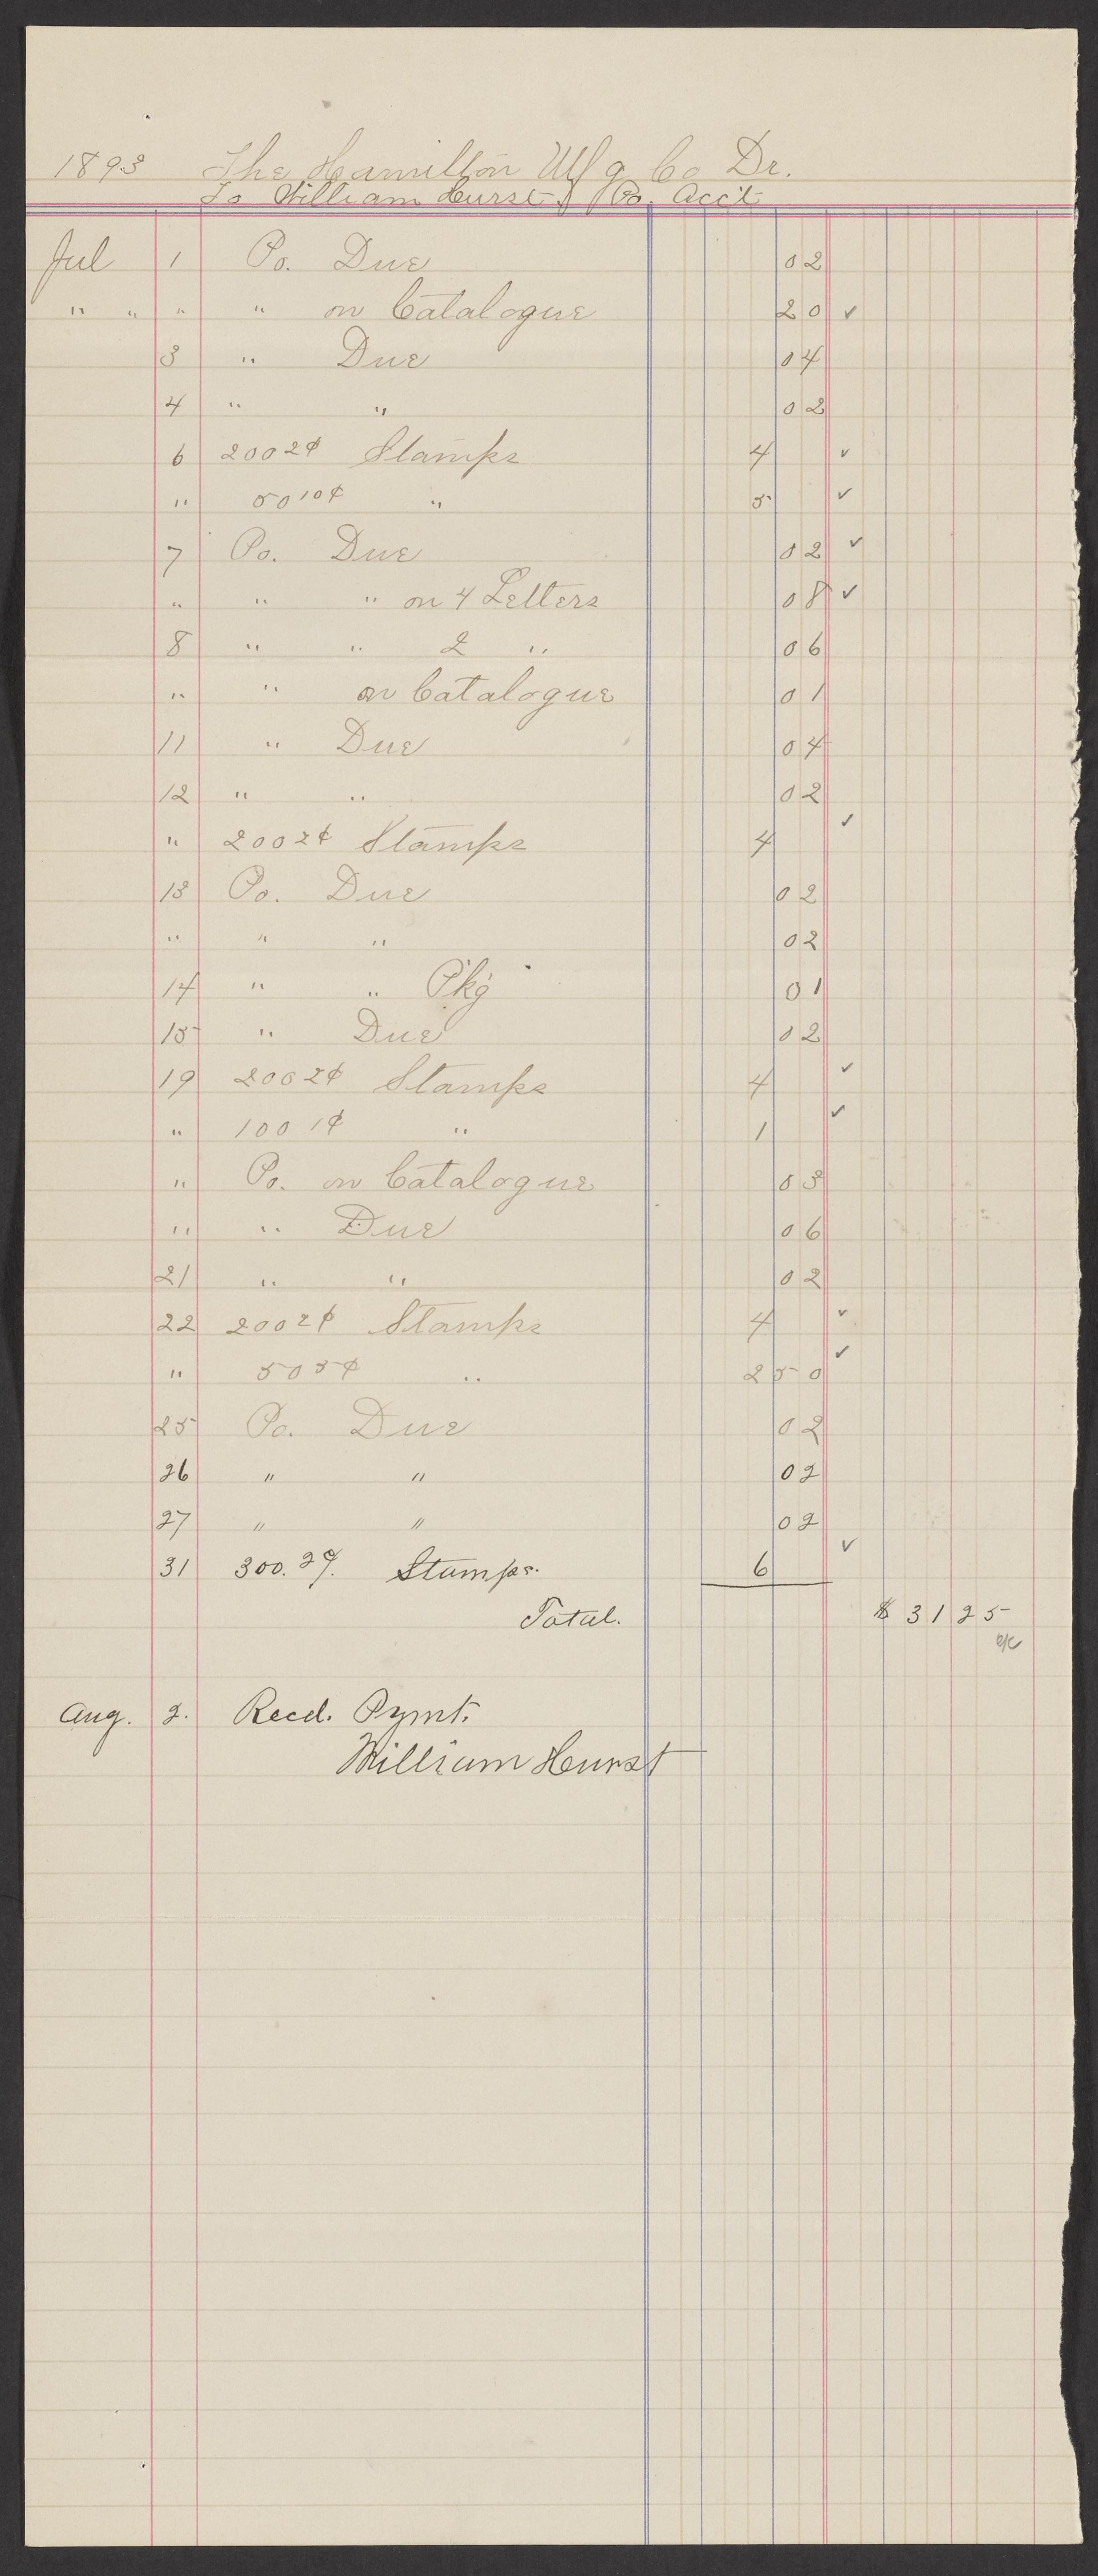 1893 The Hamilton Mfg Co Dr.
To William Hurst Po. Acc't
Jul 1 Po. Due 02
" " " " on Catalogue 20 ✓
3 " Due 04
4 " " 02
6 200 2¢ Stamps 4 ✓
" 50 10¢ " 5 ✓
7 Po. Due 02 ✓
" " " on 4 Letters 08 ✓
8 " " 2 " 06
" " on Catalogue 01
11 " Due 04
12 " " 02
" 200 2¢ Stamps 4 ✓
13 Po. Due 02
" " " 02
14 " " P'k'g 01
15 " Due 02
19 200 2¢ Stamps 4 ✓
" 100 1¢ " 1 ✓
" Po. on Catalogue 03
" " Due 06
21 " " 02
22 200 2¢ Stamps 4 ✓
" 50 5¢ " 2 50 ✓
25 Po. Due 02
26 " " 02
27 " " 02
31 300. 2¢. Stamps. 6 ✓
Total. $ 31 25
Aug. 2. Recd. Pymt.
William Hurst